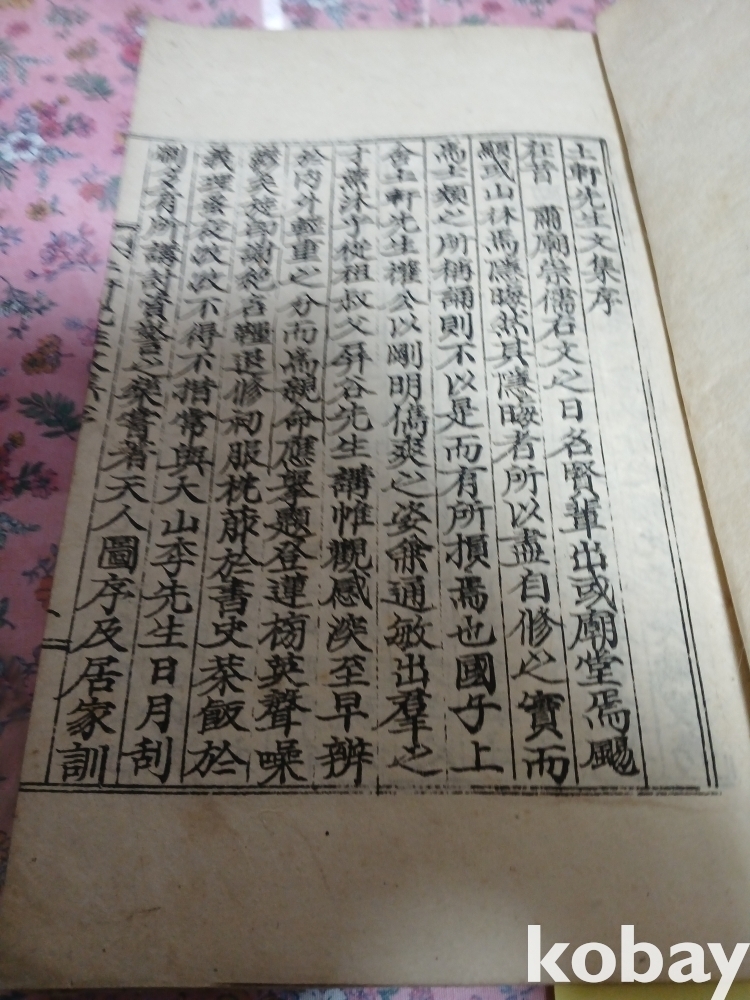 土軒先生文集序
在昔 肅廟崇儒右文之日名賢輩出或廟堂焉颺
顯或山林焉隱晦然其隱晦者所以盡自修之實而
高士類之所稱誦則不以是而有所損焉也國子上
舍土軒先生權公以剛明儁爽之姿兼通敏出羣之
才蚤沐于從祖叔父屛谷先生講帷觀感深至早辨
於內外輕重之分而爲親命應擧題登蓮榜英聲噪
蔚矣旋卽謝絶名韁退修初服枕葄於書史茶飯於
義理蚤夜孜孜不得不措常與大山李先生日月刮
劘多有所講討資警之樂嘗著天人圖序及居家訓
kobay